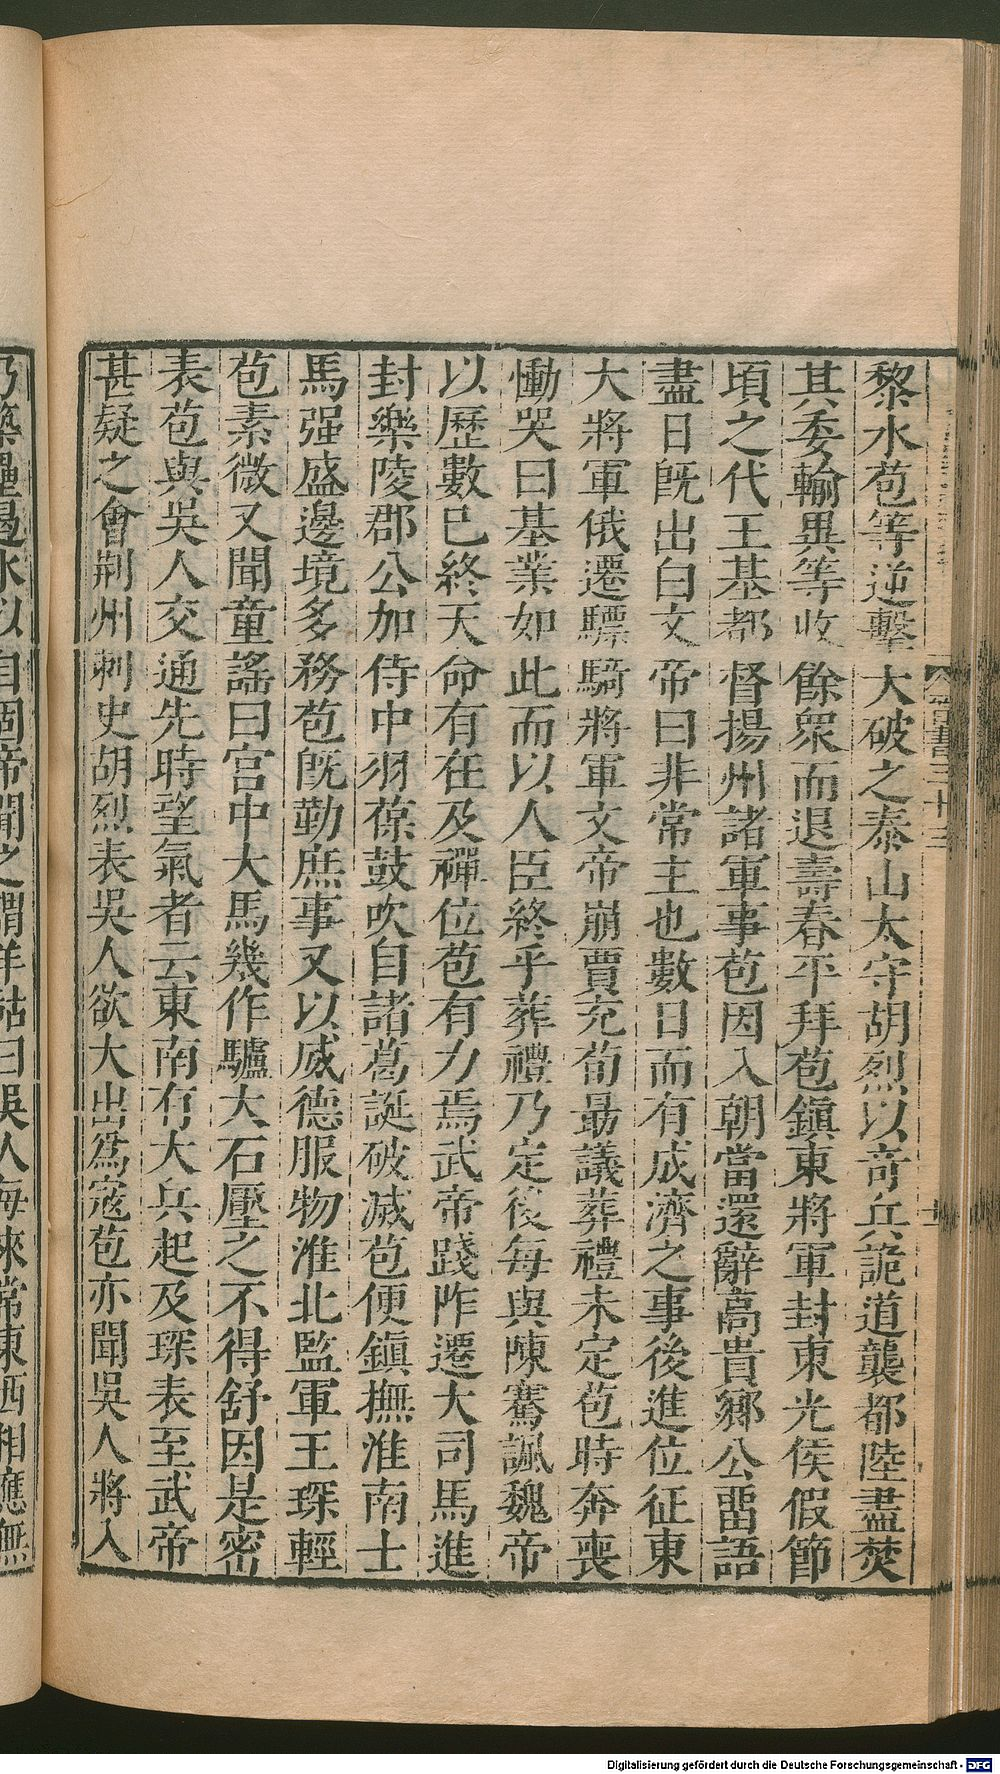 黎水苞等逆擊大破之泰山太守胡烈以奇兵詭道襲都陸盡焚
其委輸異等收餘衆而退壽春平拜苞鎮東將軍封東光侯假節
頃之代王基都督揚州諸軍事苞因入朝當還辭高貴鄉公畱語
盡日旣出白文帝曰非常主也數日而有成濟之事後進位征東
大將軍俄遷驃騎將軍文帝崩賈充荀勗議葬禮未定苞時奔喪
慟哭曰基業如此而以人臣終乎葬禮乃定後每與陳騫諷魏帝
以歷數已終天命有在及禪位苞有力焉武帝踐阼遷大司馬進
封樂陵郡公加侍中羽葆鼓吹自諸葛誕破滅苞便鎮撫淮南士
馬强盛邊境多務苞旣勤庶事又以威德服物淮北監軍王琛輕
苞素微又聞童謠曰宮中大馬幾作驢大石壓之不得舒因是密
表苞與吳人交通先時望氣者云東南有大兵起及琛表至武帝
甚疑之會荆州刺史胡烈表吳人欲大出爲寇苞亦聞吳人將入
乃築壘遏水以自固帝聞之謂羊祜曰吳人每來常東西相應無
Digitalisierung gefördert durch die Deutsche Forschungsgemeinschaft - DFG